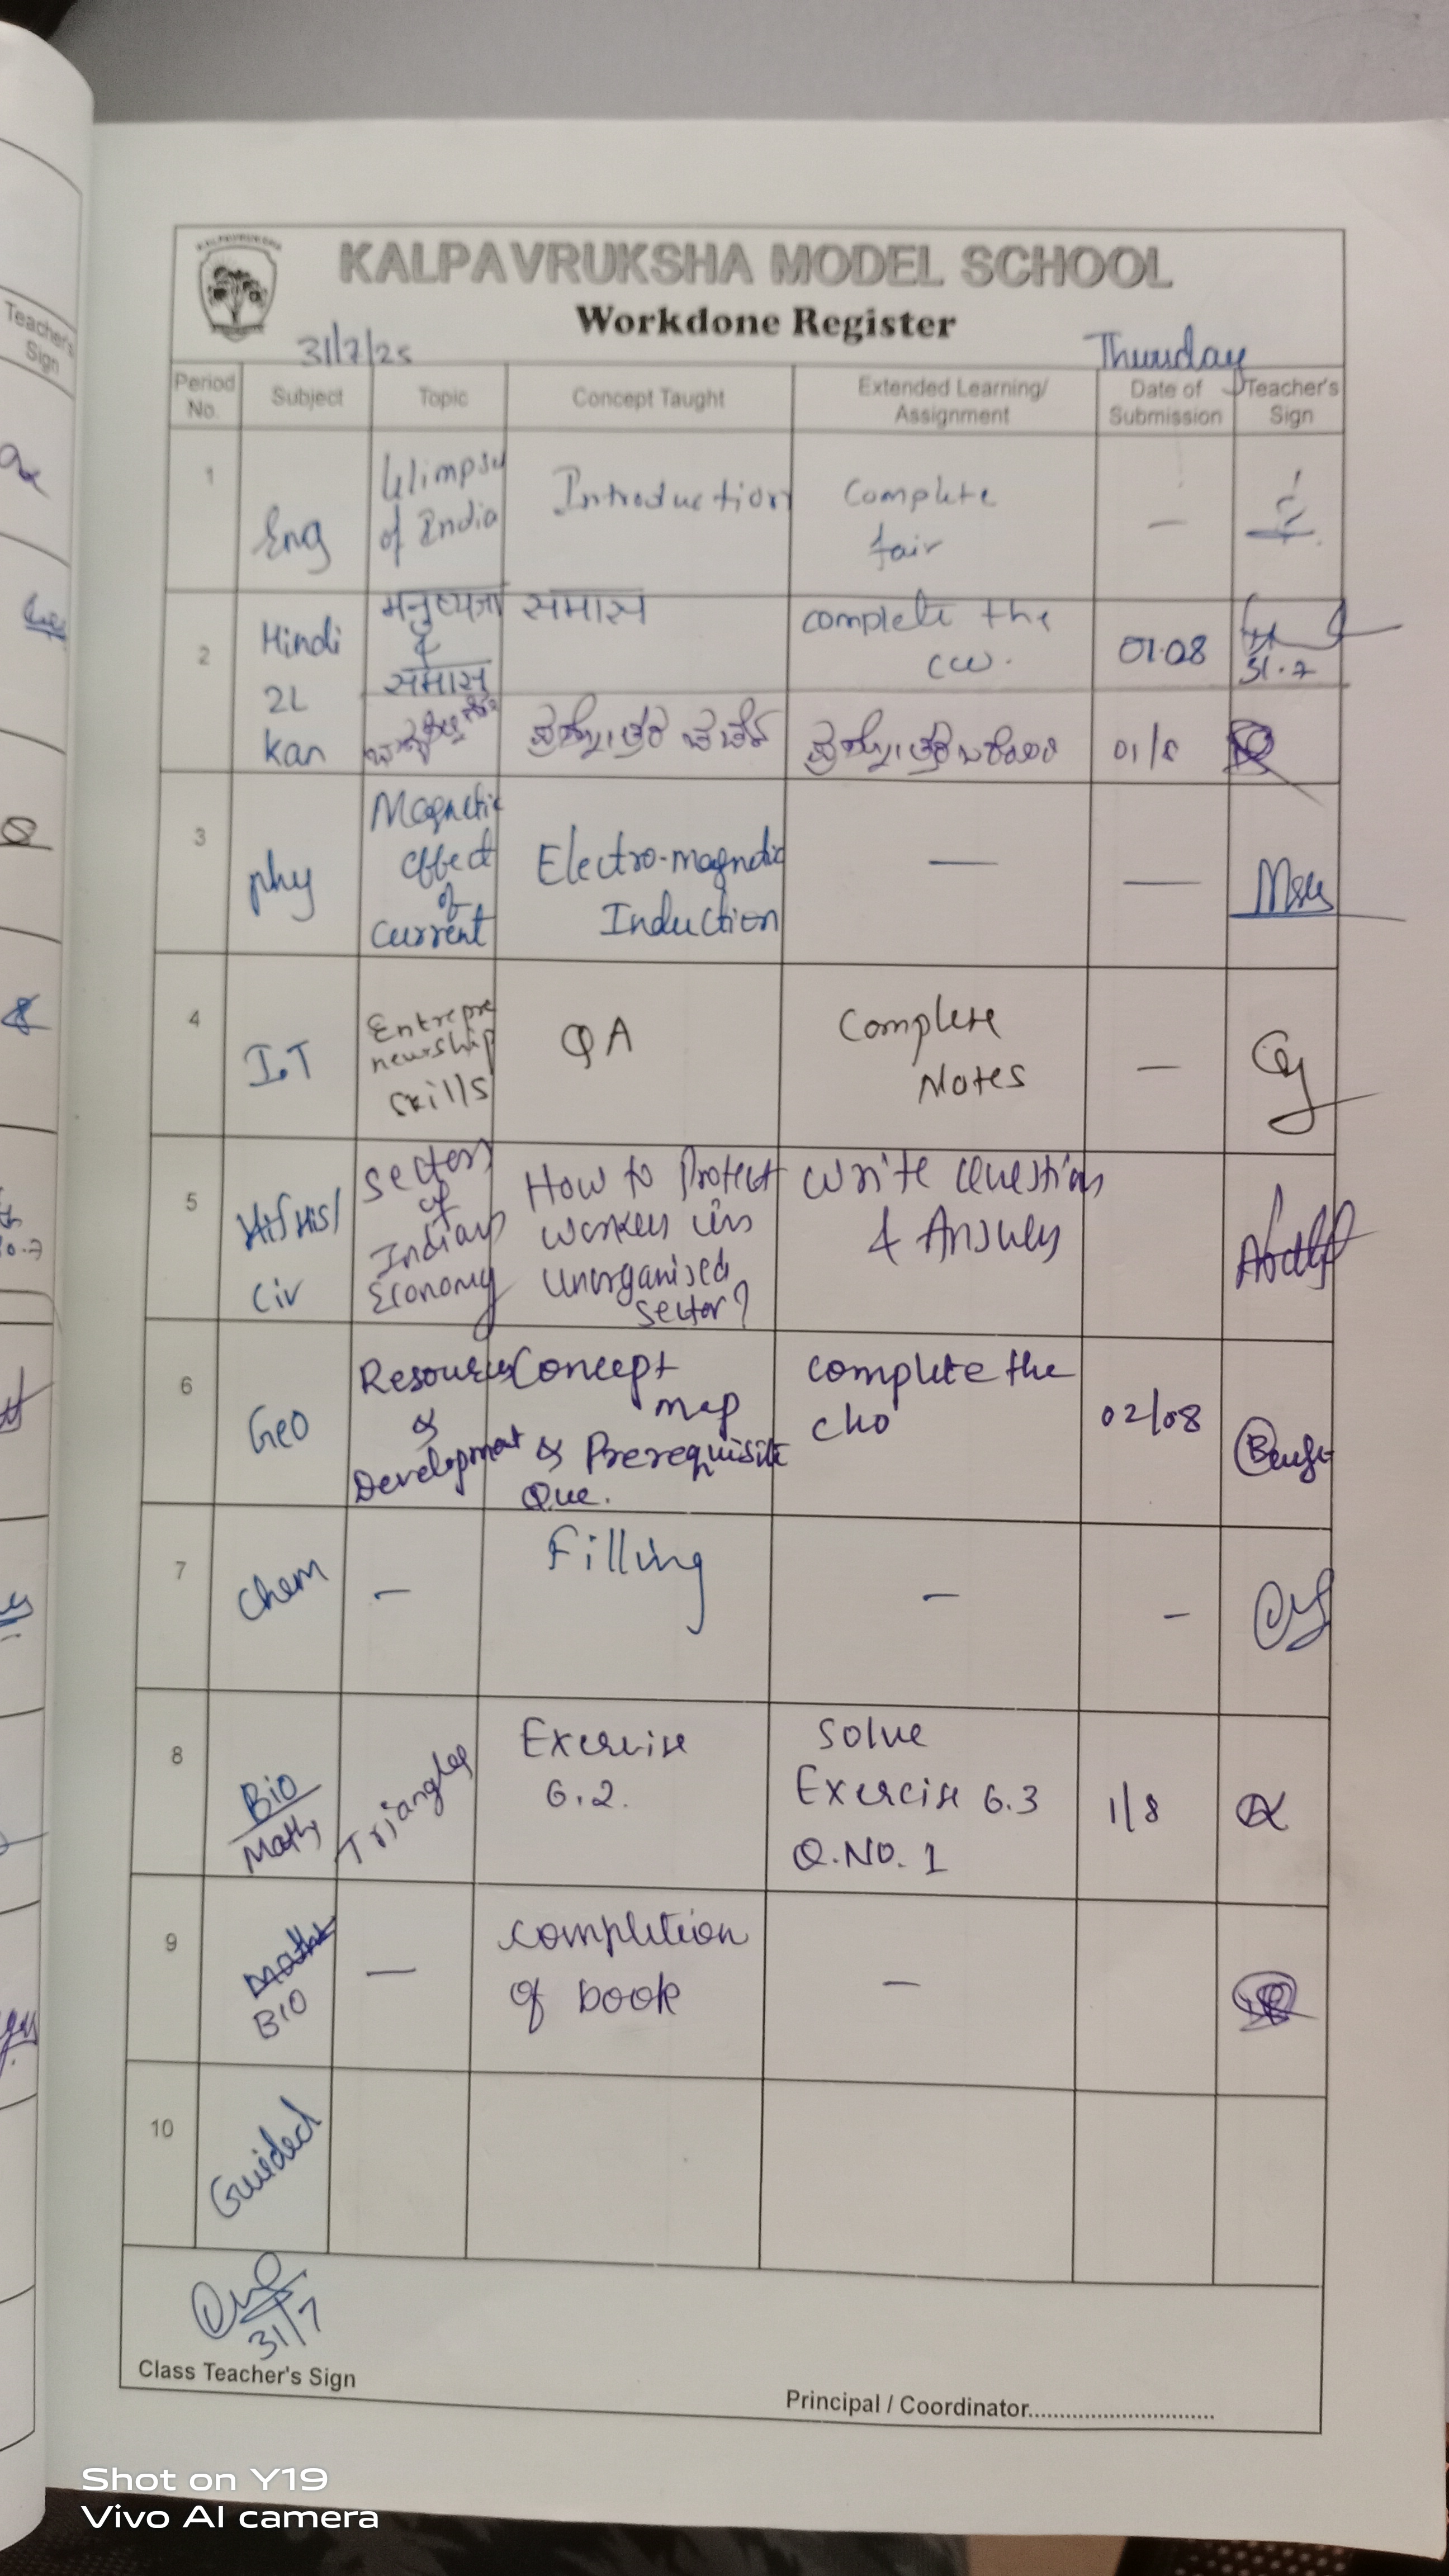 KALPAVRUKSHA
KALPAVRUKSHA MODEL SCHOOL
Workdone Register
31/7/25 Thursday
Period No. Subject Topic Concept Taught Extended Learning/ Assignment Date of Submission Teacher's Sign
1 Eng Glimpses of India Introduction Complete fair —
2 Hindi मनुष्यता & समास समास complete the cw. 01.08 31.7
2L Kan 01/8
3 phy Magnetic effect of current Electro-magnetic Induction — —
4 I.T Entrepreneurship skills QA Complete Notes —
5 His/ Civ Sectors of Indian Economy How to Protect workers in unorganised sector? Write Question & Answers
6 Geo Resources & Development Concept map & Prerequisite Que. complete the 02/08
7 Chem — Filling — —
8 Bio Maths Triangles Exercise 6.2. Solve Exercise 6.3 Q.NO. 1 1/8
9 Maths BIO — completion of book —
10 Guided
31/7
Class Teacher's Sign
Principal / Coordinator..............................
Teacher's Sign
Shot on Y19
Vivo AI camera